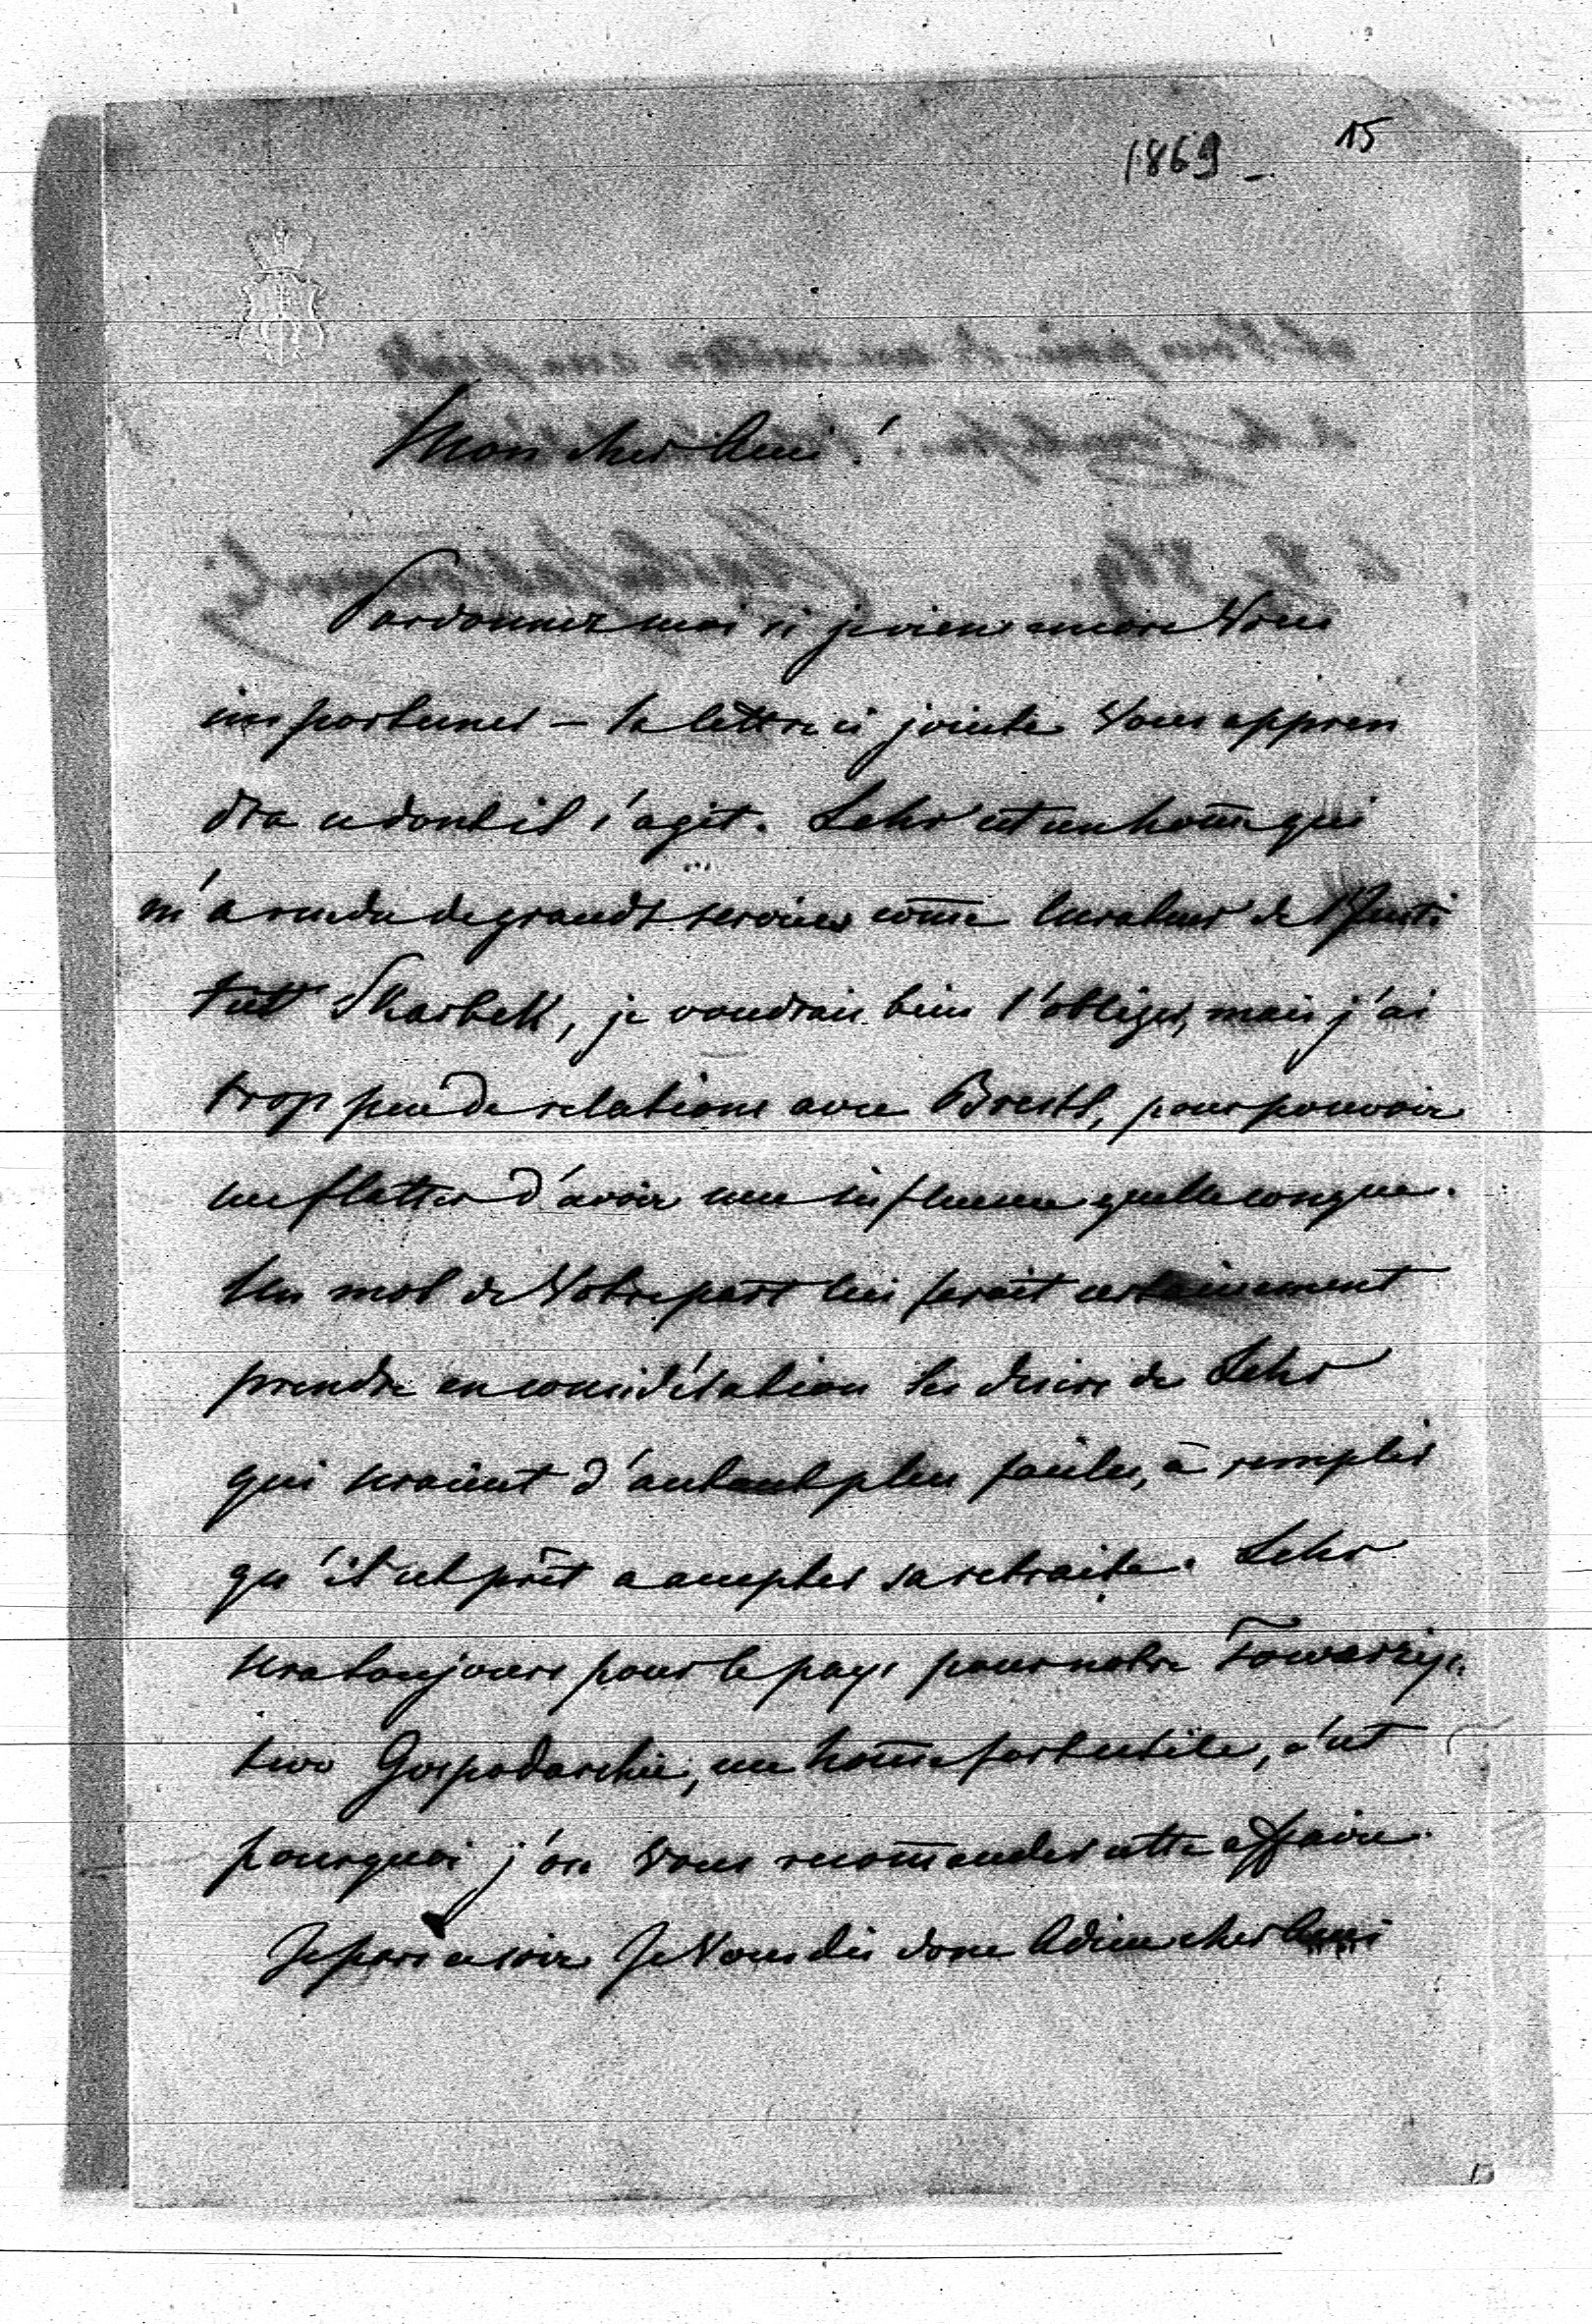 1869 -
15
Mon cher Ami!
Pardonnez moi si je viens encore Vous
importuner — la lettre ci jointe Vous appren
dra ce dont il s'agit. Lehr est un hom̄e qui
m'a rendu de grands services com̄e Curateur de l'Insti
tut Skarbek, je voudrais bien l'obliger, mais j'ai
trop peu de relations avec Brestl, pour pouvoir
me flatter d'avoir une influence quelleconque.
Un mot de Votre part lui ferait certainement
prendre en considération les désirs de Lehr
qui seraient d'autant plus faciles, à remplir
qu'il est prêt a accepter sa retraite. Lehr
sera toujours pour le pays pour notre Towarzys
two Gospodarskie, un hom̄e fort utile, c'est
pourquoi j'ose Vous recom̄ander cette affaire.
Je pars ce soir Je Vous dis donc Adieu cher Ami
15